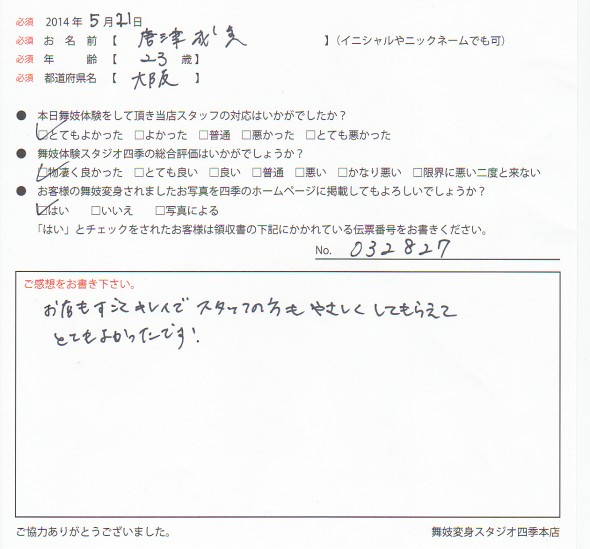 必須 2014年5月21日
必須 お名前【 唐津 】(イニシャルやニックネームでも可)
必須 年 齢【 23 歳】
必須 都道府県名【 大阪 】
● 本日舞妓体験をして頂き当店スタッフの対応はいかがでしたか？
☑とてもよかった □よかった □普通 □悪かった □とても悪かった
● 舞妓体験スタジオ四季の総合評価はいかがでしょうか？
☑物凄く良かった □とても良い □良い □普通 □悪い □かなり悪い □限界に悪い二度と来ない
● お客様の舞妓変身されましたお写真を四季のホームページに掲載してもよろしいでしょうか？
☑はい □いいえ □写真による
「はい」とチェックをされたお客様は領収書の下記にかかれている伝票番号をお書きください。
No. 032827
ご感想をお書き下さい。
お店もすごくキレイで スタッフの方も やさしく してもらえて
とてもよかったです!
ご協力ありがとうございました。
舞妓変身スタジオ四季本店